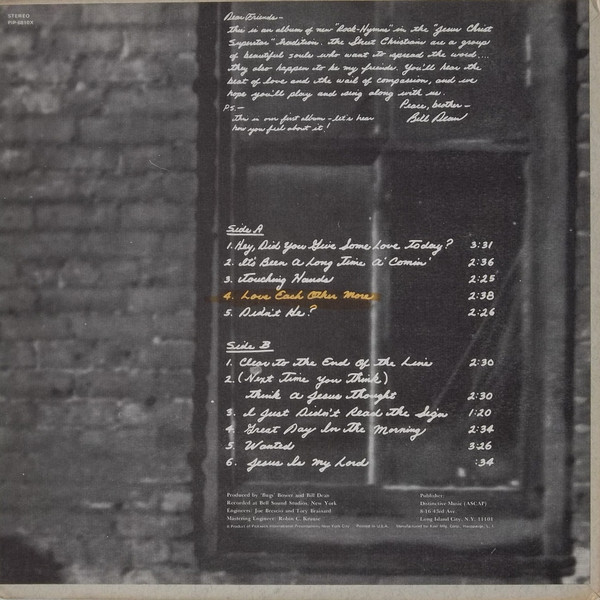 STEREO
Dear Friends -
this is an album of new "Rock-Hymns" in the "Jesus Christ
Superstar" tradition. the Street Christians are a group
of beautiful souls who want to spread the word....
they also happen to be my friends. You'll hear the
beat of love and the wail of compassion, and we
hope you'll play and sing along with us.
Peace, brother -
Bill Dean
P.S. -
this is our first album - let's hear
how you feel about it!
Side A
1. Hey, Did You Give Some Love Today? 3:31
2. It's Been A Long Time A' Comin' 2:36
3. Touching Hands 2:25
4. Love Each Other More 2:38
5. Didn't He? 2:26
Side B
1. Clear to the End Of the Line 2:30
2. (Next Time You Think)
think A Jesus thought 2:30
3. I Just Didn't Read the Sign 1:20
4. Great Day In the Morning 2:34
5. Wanted 3:26
6. Jesus Is My Lord :34
Produced by 'Bugs' Bower and Bill Dean
Recorded at Bell Sound Studios, New York
Engineers: Joe Brescio and Tory Brainard
Mastering Engineer: Robin C. Kruse
Publisher:
Distinctive Music (ASCAP)
8-16 43rd Ave.
Long Island City, N.Y. 11101
A Product of Pickwick International Productions, New York City Printed in U.S.A. Manufactured by